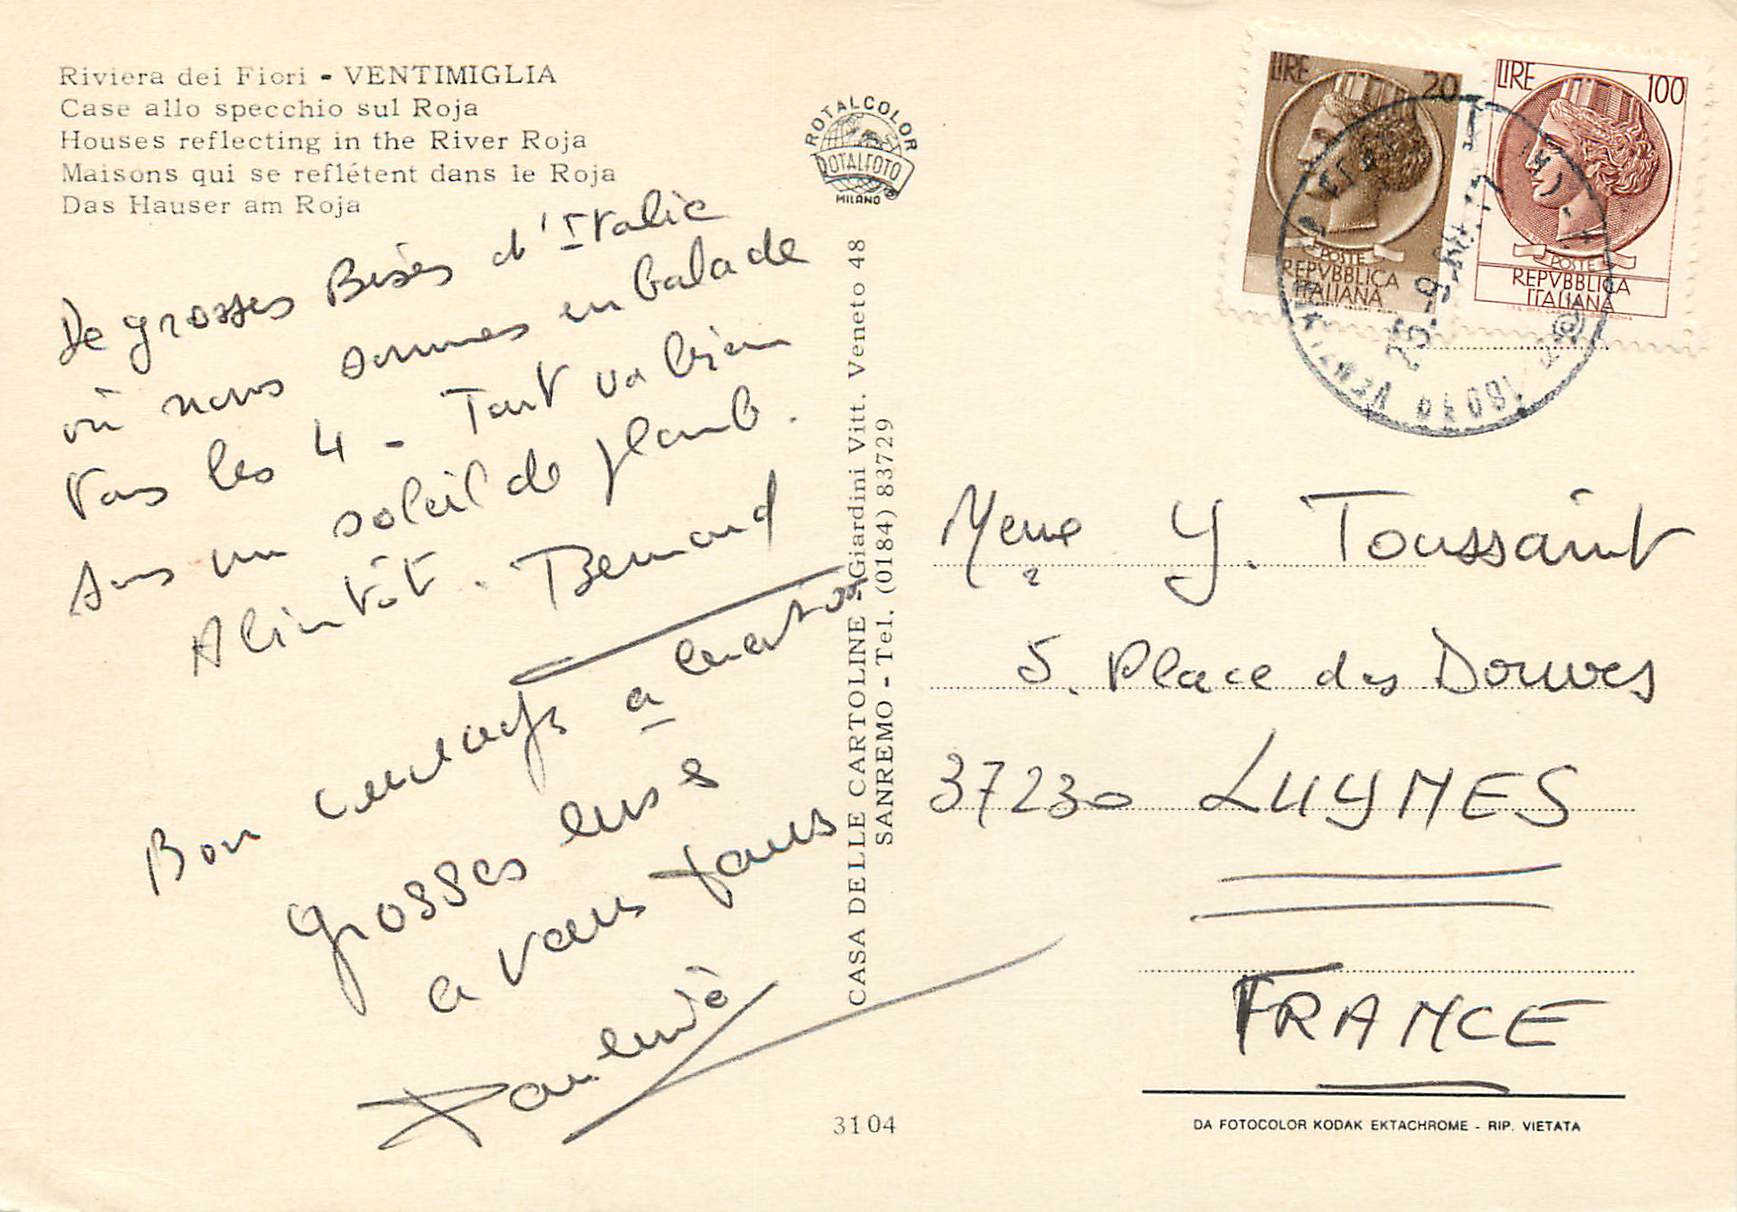 Riviera dei Fiori - VENTIMIGLIA
Case allo specchio sul Roja
Houses reflecting in the River Roja
Maisons qui se reflétent dans le Roja
Das Hauser am Roja
De grosses Bises d'Italie
où nous sommes en balade
tous les 4 - Tout va bien
sous un soleil de plomb.
A bientôt. Bernard
Bon courage à
Grosses bises
a vous tous
ROTALCOLOR
ROTALFOTO
MILANO
CASA DELLE CARTOLINE - Giardini Vitt. Veneto 48
SANREMO - Tel. (0184) 83729
3104
LIRE 20
POSTE
REPVBBLICA
ITALIANA
LIRE 100
POSTE
REPVBBLICA
ITALIANA
Mme Y. Toussaint
5. Place des Douves
37230 LUYNES
FRANCE
DA FOTOCOLOR KODAK EKTACHROME - RIP. VIETATA